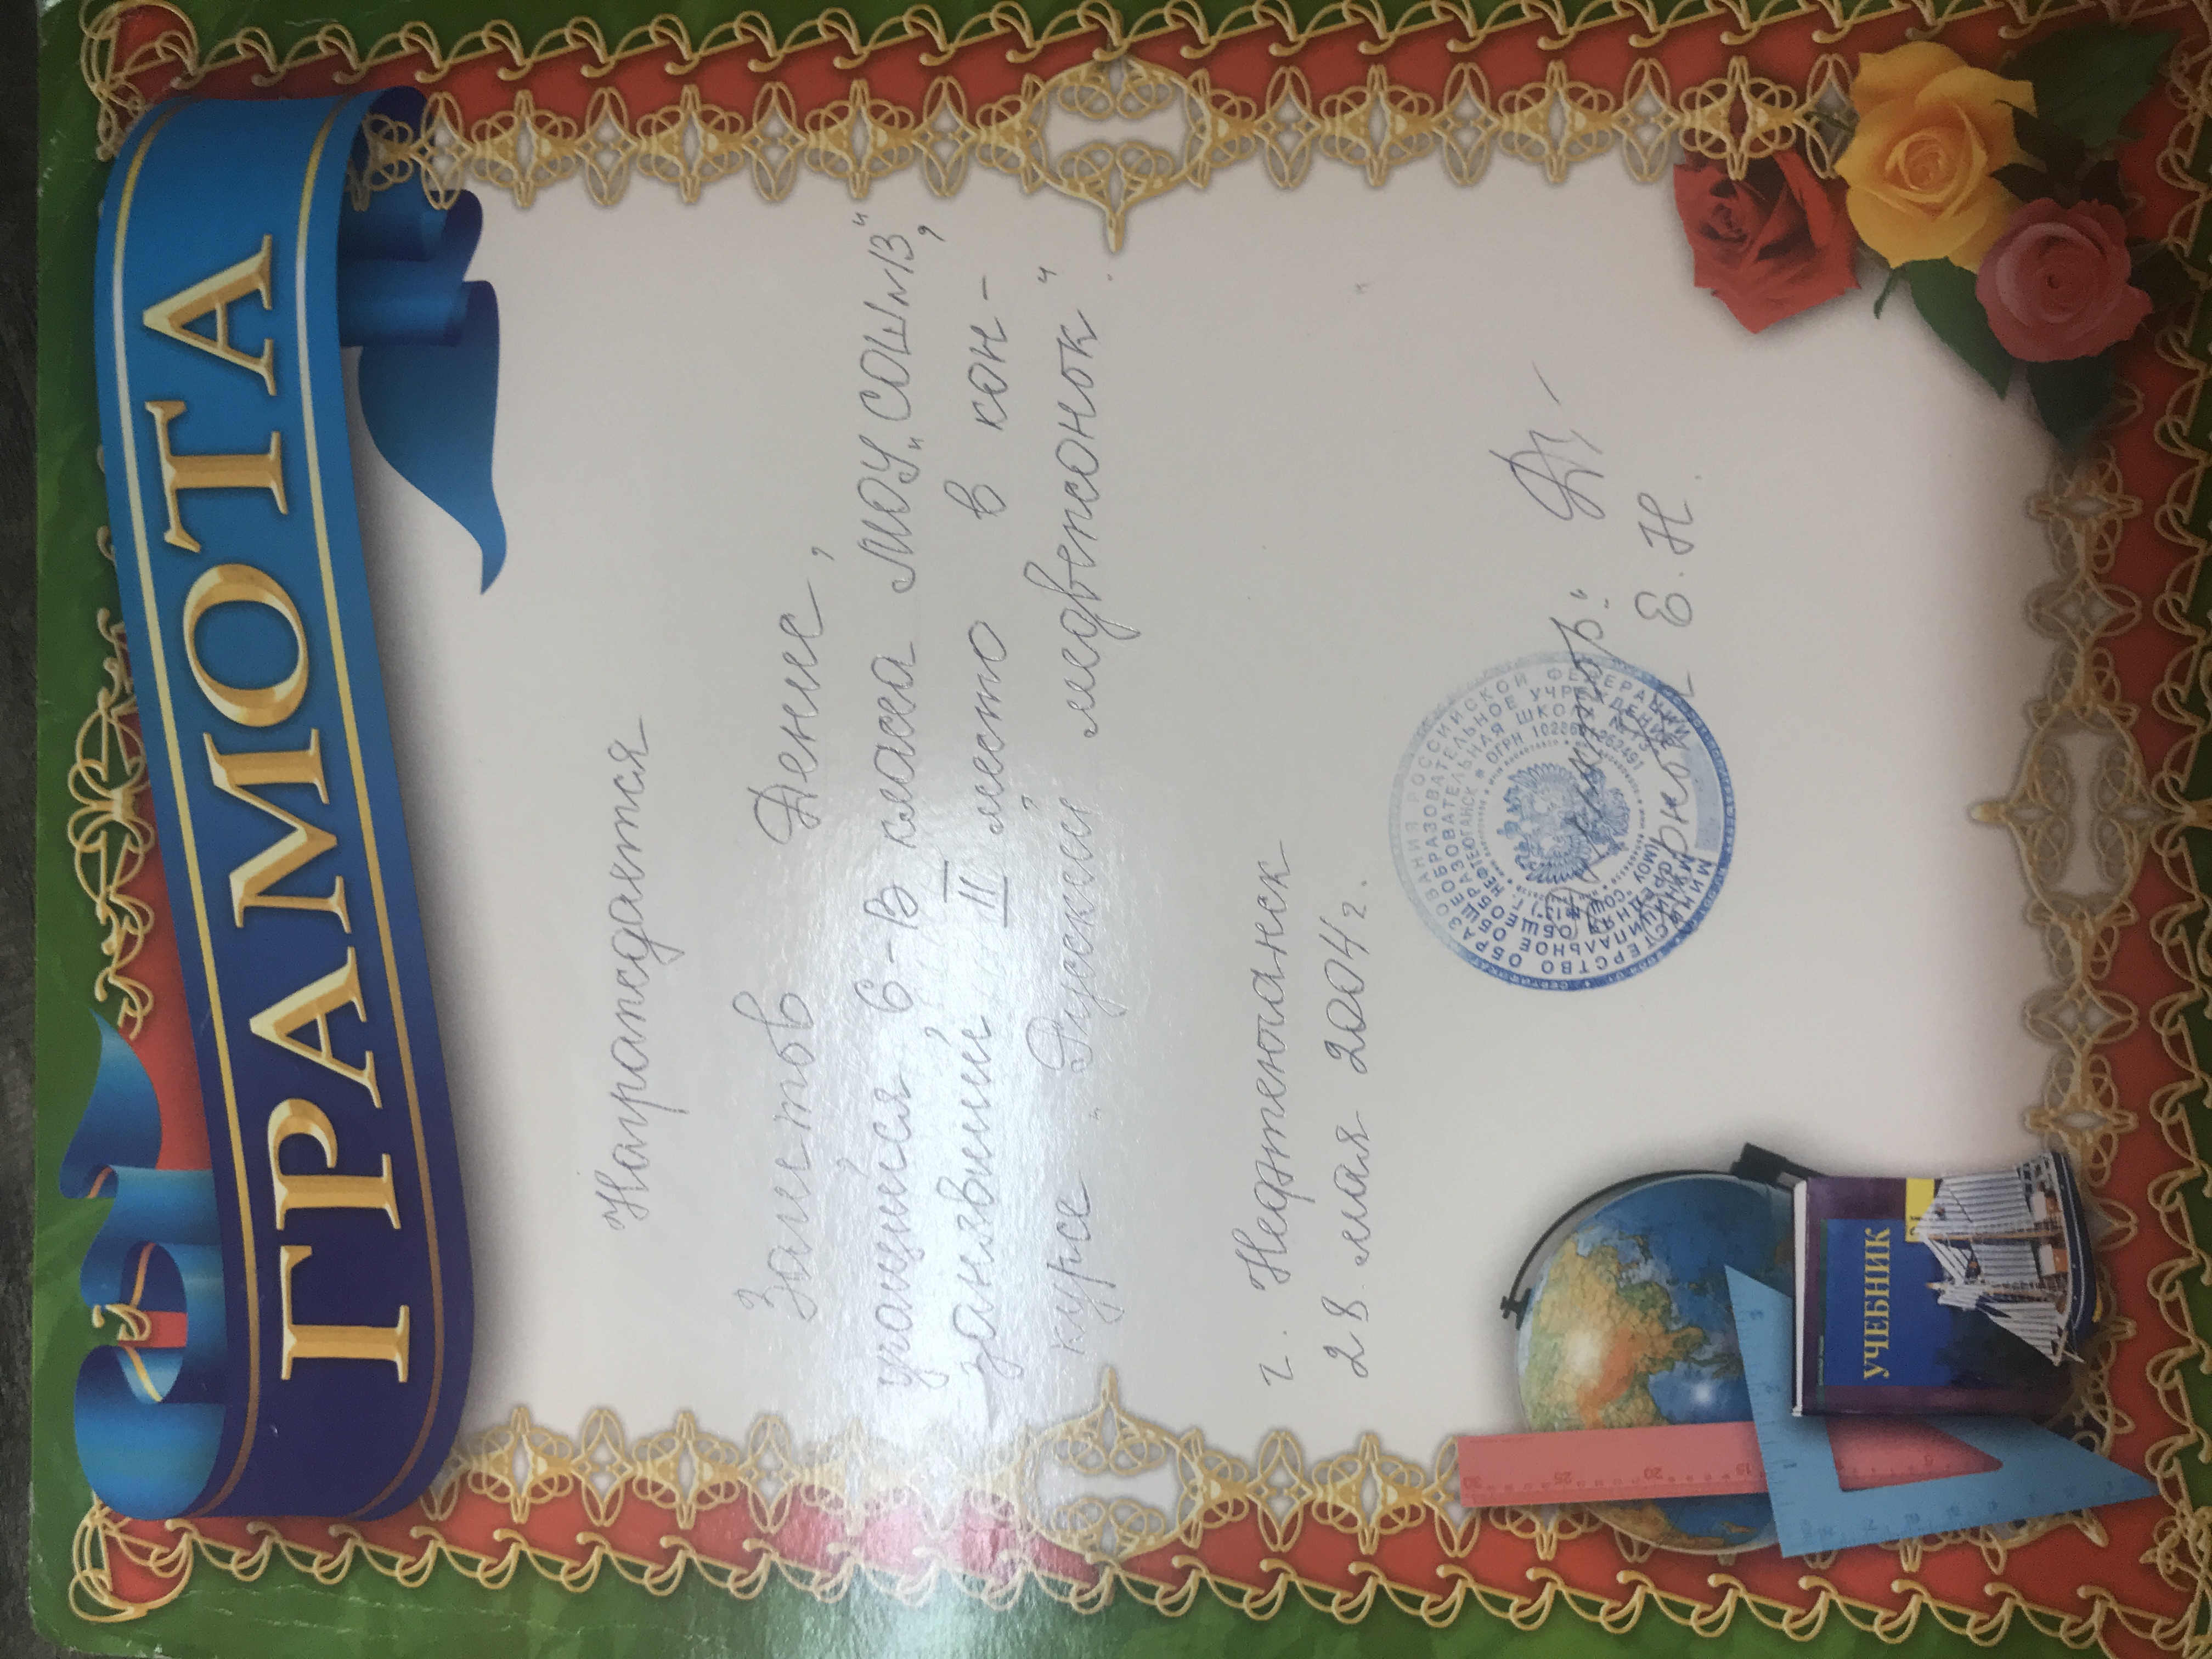 ГРАМОТА
Награждается
Заитов Денис,
учащийся 6-В класса МОУ „СОШ №13",
занявший II место в кон-
курсе „Русский медвежонок".
г. Нефтеюганск
28 мая 2004 г.
МИНИСТЕРСТВО ОБРАЗОВАНИЯ РОССИЙСКОЙ ФЕДЕРАЦИИ
МУНИЦИПАЛЬНОЕ ОБЩЕОБРАЗОВАТЕЛЬНОЕ УЧРЕЖДЕНИЕ
СРЕДНЯЯ ОБЩЕОБРАЗОВАТЕЛЬНАЯ ШКОЛА №13
(МОУ "СОШ №13") Г. НЕФТЕЮГАНСК * ОГРН
Директор:
Е.Н.
УЧЕБНИК
30
25
20
15
5